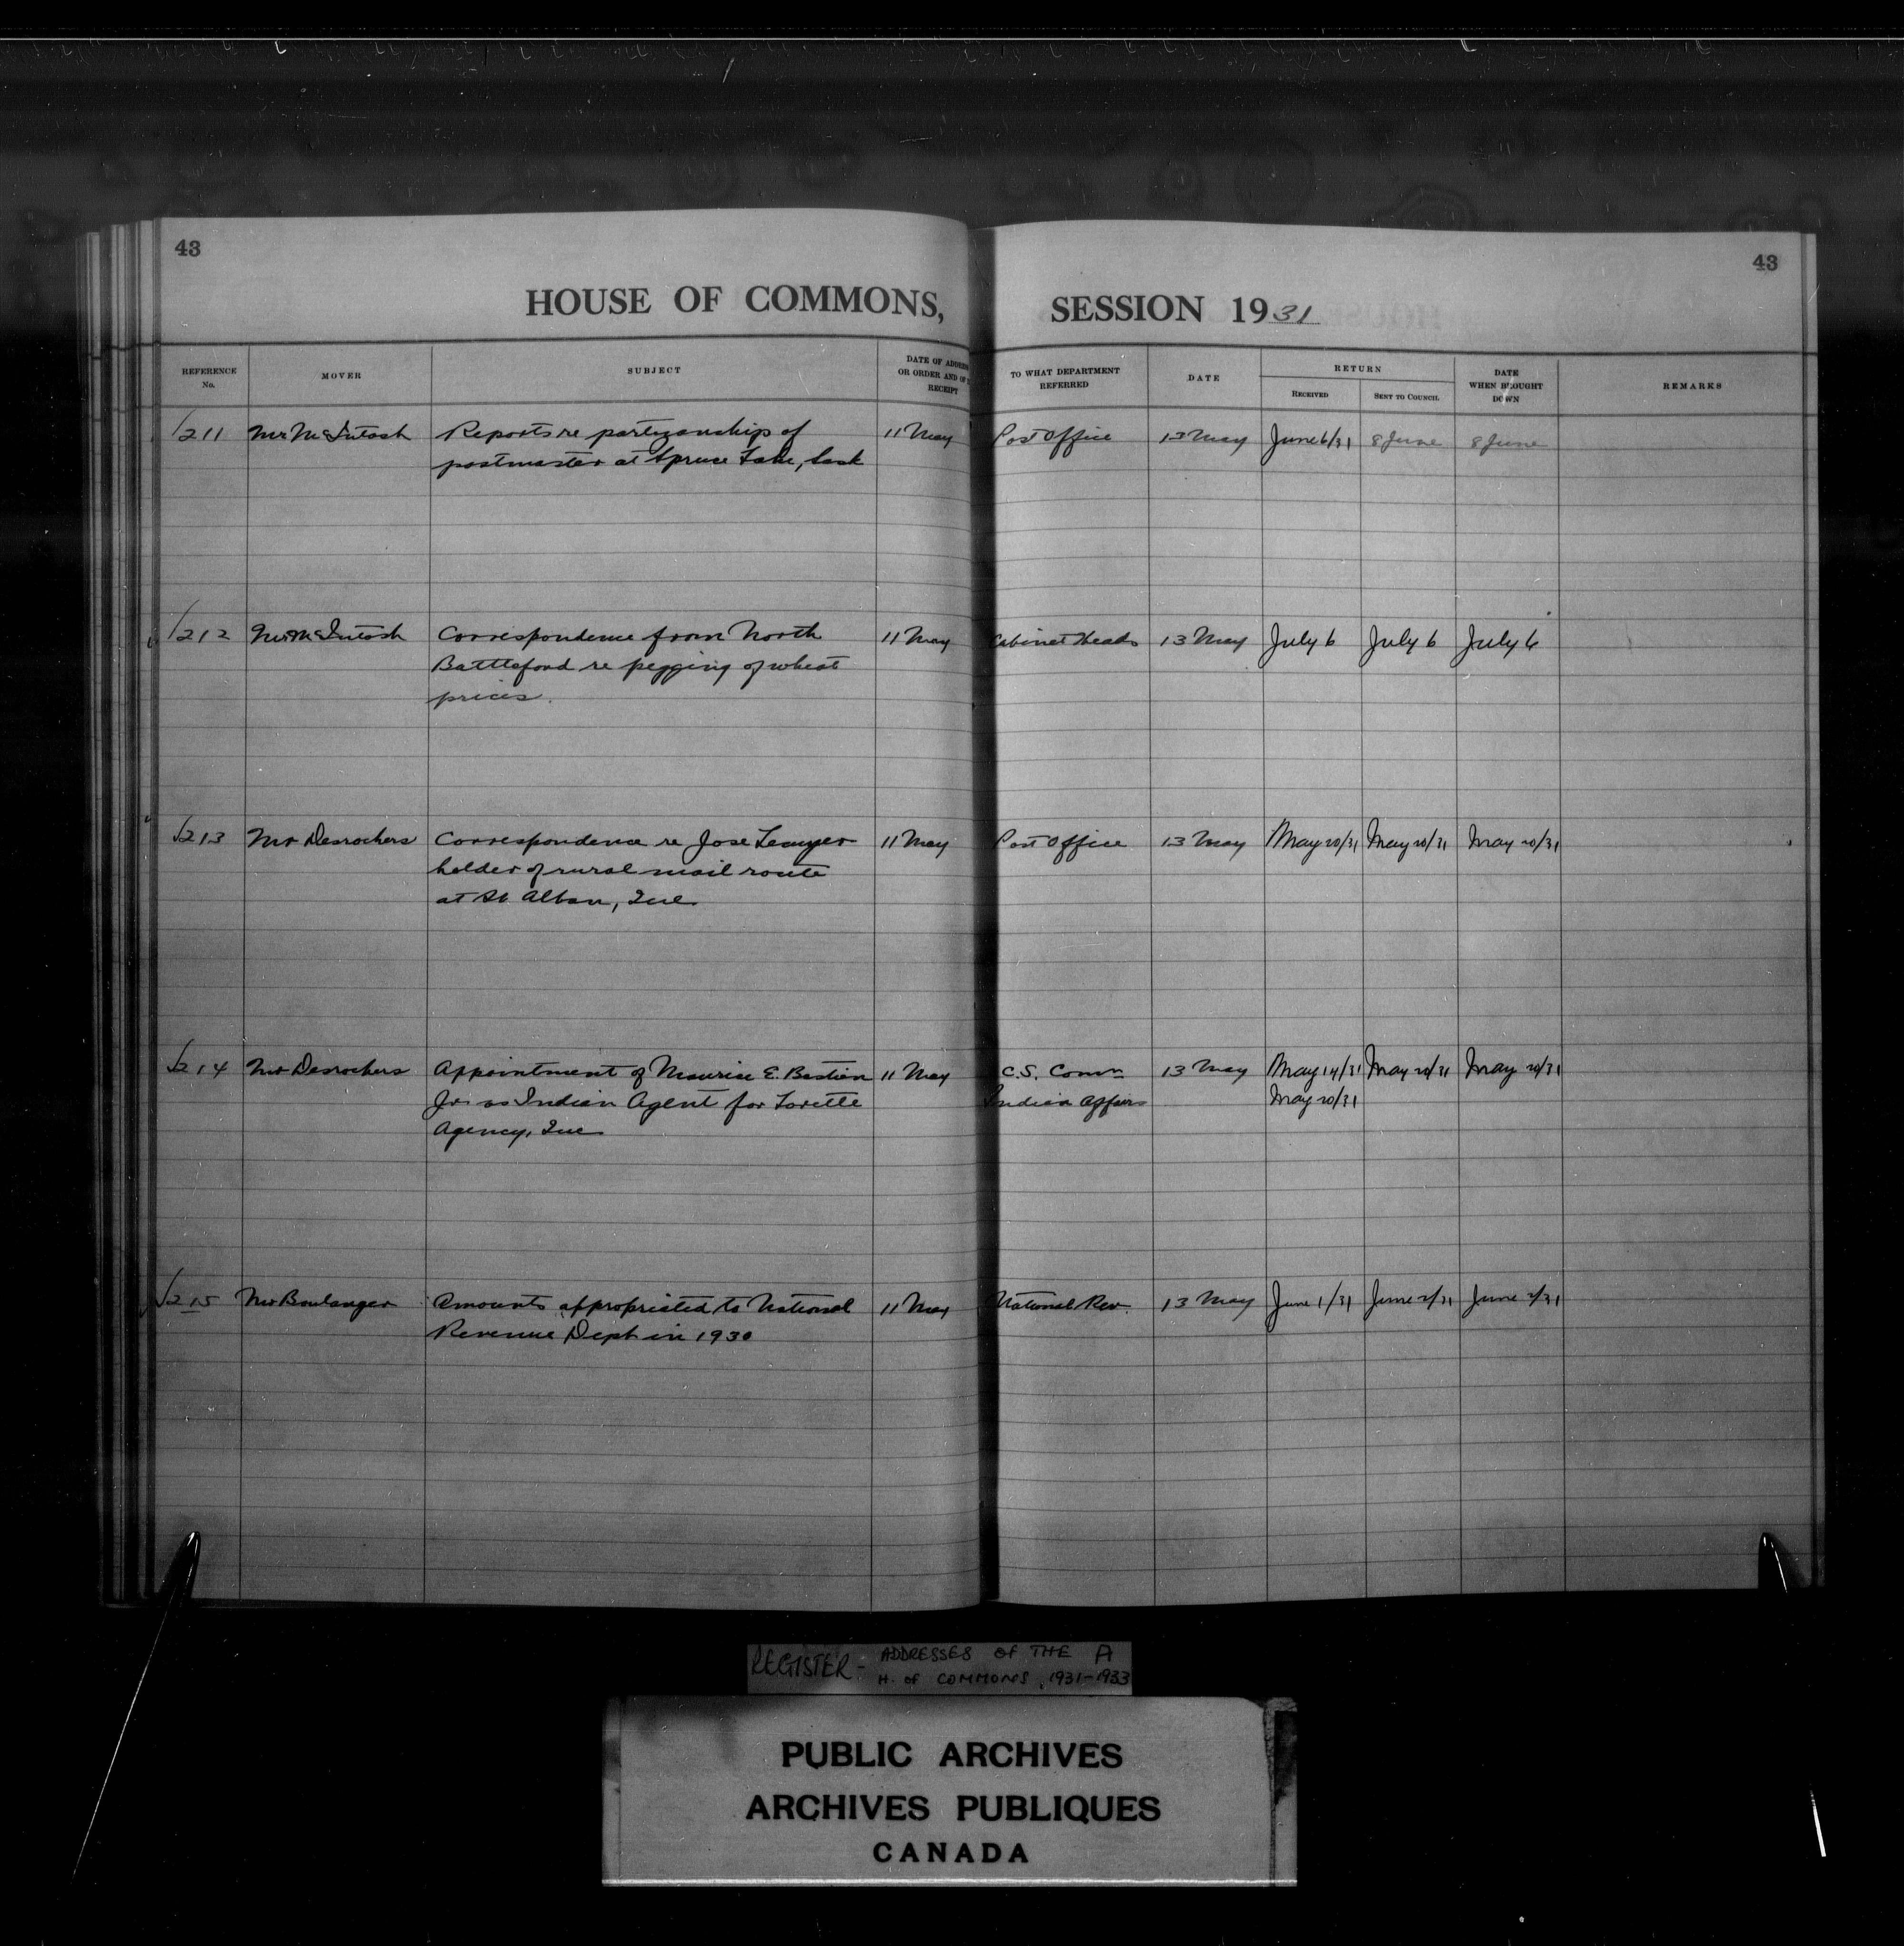 43
43
HOUSE OF COMMONS, SESSION 1931
REFERENCE No.
MOVER
SUBJECT
DATE OF ADDRESS OR ORDER AND OF RECEIPT
TO WHAT DEPARTMENT REFERRED
DATE
RETURN
RECEIVED
SENT TO COUNCIL
DATE WHEN BROUGHT DOWN
REMARKS
211 Mr McIntosh Reports re partizanship of 11 May Post Office 13 May June 6/31 8 June 8 June
postmaster at Spruce Lake, Sask
212 Mr McIntosh Correspondence from North 11 May Cabinet Heads 13 May July 6 July 6 July 6
Battleford re pegging of wheat
prices.
213 Mr Desrochers Correspondence re Jose 11 May Post Office 13 May May 20/31 May 20/31 May 20/31
holder of rural mail route
at St. Alban, Que
214 Mr Desrochers Appointment of Maurice E. Bastien 11 May C.S. Comm 13 May May 14/31 May 20/31 May 20/31
Jr. as Indian Agent for Lorette Indian Affairs May 20/31
Agency, Que
215 Mr Boulanger Amounts appropriated to National 11 May National Rev. 13 May June 1/31 June 2/31 June 2/31
Revenue Dept in 1930
REGISTER - ADDRESSES OF THE A
H. of COMMONS, 1931-1933
PUBLIC ARCHIVES
ARCHIVES PUBLIQUES
CANADA